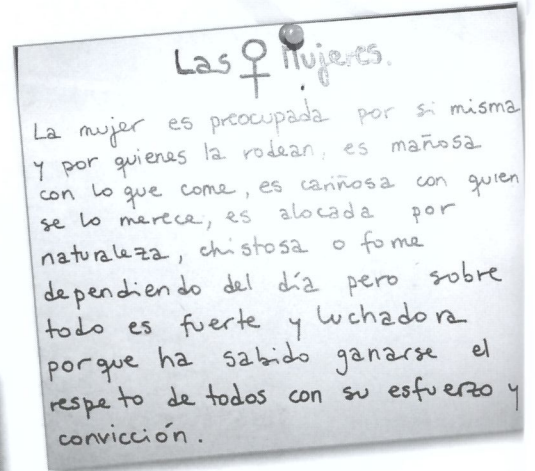 Las ♀ Mujeres.
La mujer es preocupada por si misma
y por quienes la rodean, es mañosa
con lo que come, es cariñosa con quien
se lo merece, es alocada por
naturaleza, chistosa o fome
dependiendo del día pero sobre
todo es fuerte y luchadora
porque ha sabido ganarse el
respeto de todos con su esfuerzo y
convicción.